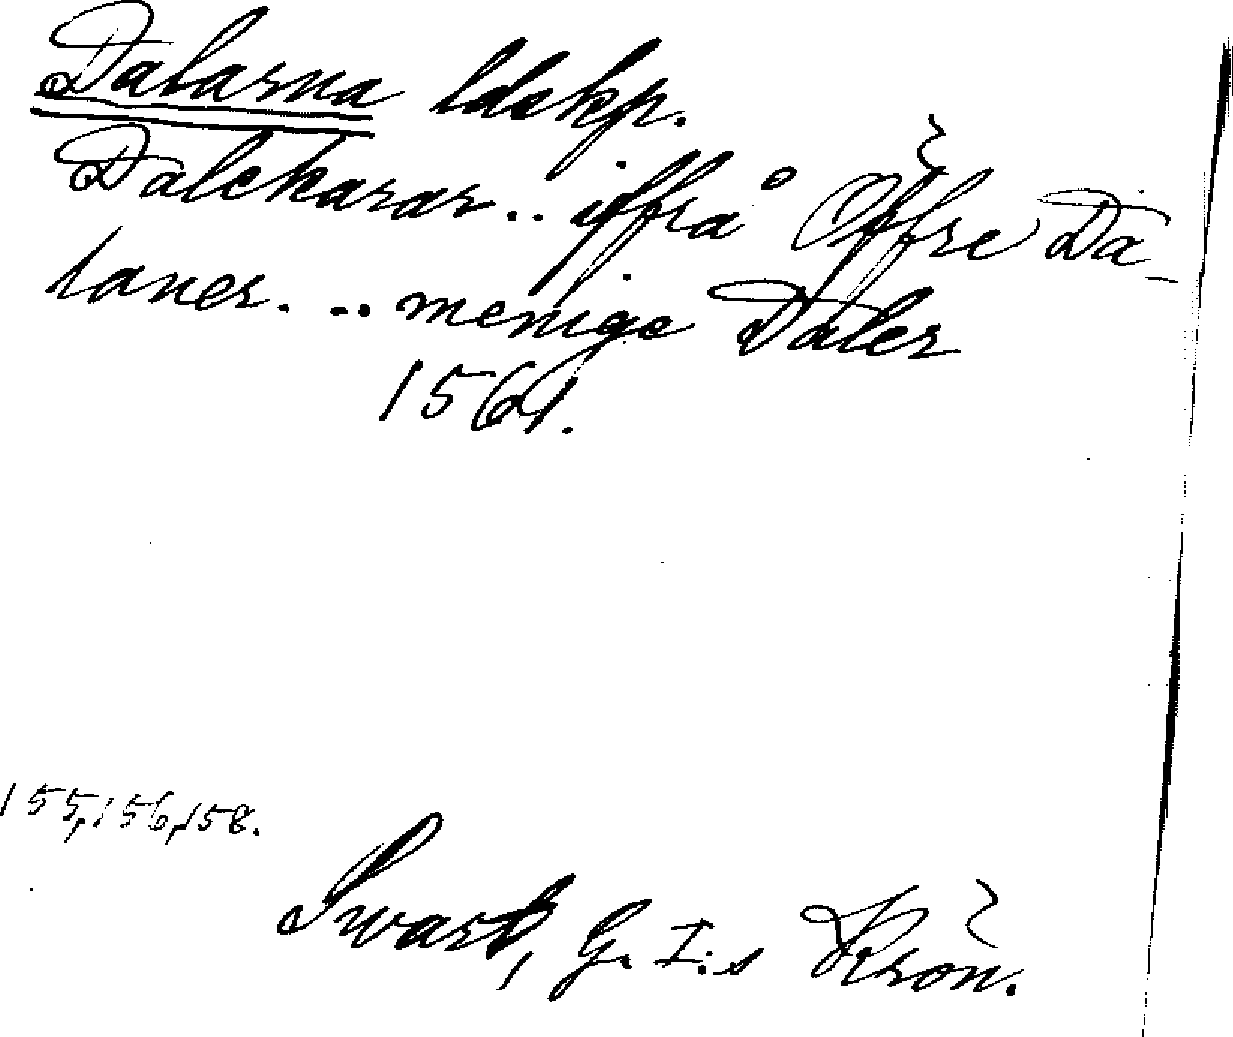 Dalarna ldskp.
Dalekarar .. iffrå Öffre Da-
laner. ... menige Daler
1561.
155, 156, 158.
Swart, G. I:s Krön.